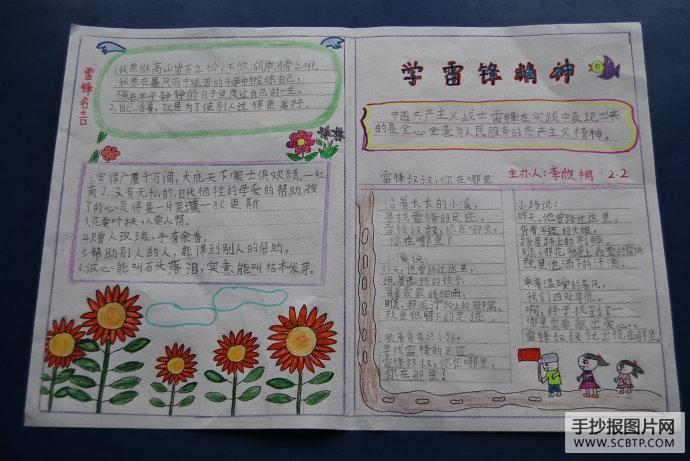 雷锋名言
1.我愿做高山岩石之松,不做湖岸河旁之柳。
我愿在暴风雨中艰苦的斗争中锻炼自己,
不愿在平平静静的日子里度过自己的一生。
2.自己活着,就是为了使别人过得更美好。
1.安得广厦千万间,大庇天下寒士俱欢颜。—杜
甫 2.没有无私的、自我牺牲的母爱的帮助,孩
子的心灵将是一片荒漠—狄更斯
3.花要叶扶,人要人帮。
4.赠人玫瑰,手有余香。
5.帮助别人的人,能得到别人的帮助。
6.诚心能叫石头落泪,实意能叫枯木发芽。
学雷锋精神
中国共产主义战士雷锋在实践中表现出来
的是全心全意为人民服务的共产主义精神。
雷锋叔叔,你在哪里
主办人:李欣桐 2.2
沿着长长的小溪,
寻找雷锋的足迹。
雷锋叔叔,你在哪里,
你在哪里?
小溪说:
昨天,他曾路过这里,
抱着迷路的孩子,
冒着蒙蒙的细雨。
瞧,那泥泞路上的脚窝,
就是他留下的足迹。
顺着弯弯的小路,
寻找雷锋的足迹。
雷锋叔叔,你在哪里,
你在哪里?
小路说:
昨天,他曾路过这里,
背着年迈的大娘,
踏着路上的荆棘。
瞧,那花瓣上晶莹的露珠,
就是他洒下的汗滴。
乘着温暖的春风,
我们四处寻觅。
啊,终于找到了—
哪里需要献出爱心,
雷锋叔叔就出现在哪里。
手抄报图片网
WWW.SCBTP.COM